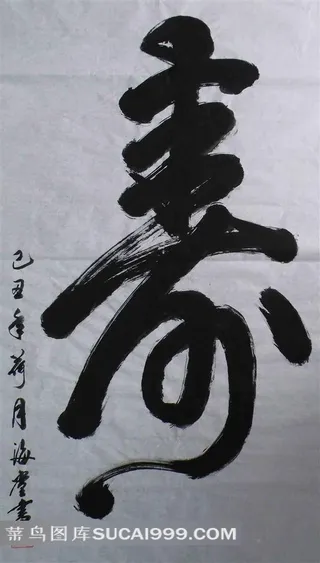 寿
己丑年荷月海鹰书
菜鸟图库SUCAI999.COM